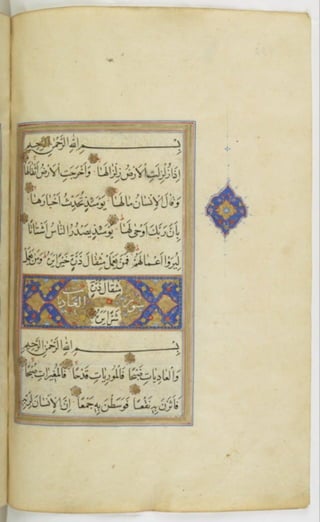 بِسْمِ اللهِ الرَّحْمٰنِ الرَّحِيمِ
اِذَا زُلْزِلَتِ الْاَرْضُ زِلْزَالَهَا وَاَخْرَجَتِ الْاَرْضُ اَثْقَالَهَا
وَقَالَ الْاِنْسَانُ مَالَهَا يَوْمَئِذٍ تُحَدِّثُ اَخْبَارَهَا
بِاَنَّ رَبَّكَ اَوْحٰى لَهَا يَوْمَئِذٍ يَصْدُرُ النَّاسُ اَشْتَاتًا
لِيُرَوْا اَعْمَالَهُمْ فَمَنْ يَعْمَلْ مِثْقَالَ ذَرَّةٍ خَيْرًا يَرَهُ وَمَنْ يَعْمَلْ
مِثْقَالَ ذَرَّةٍ
سورة العاديات
شَرًّا يَرَهُ
بِسْمِ اللهِ الرَّحْمٰنِ الرَّحِيمِ
وَالْعَادِيَاتِ ضَبْحًا فَالْمُورِيَاتِ قَدْحًا فَالْمُغِيرَاتِ صُبْحًا
فَاَثَرْنَ بِهِ نَقْعًا فَوَسَطْنَ بِهِ جَمْعًا اِنَّ الْاِنْسَانَ لِرَبِّهِ